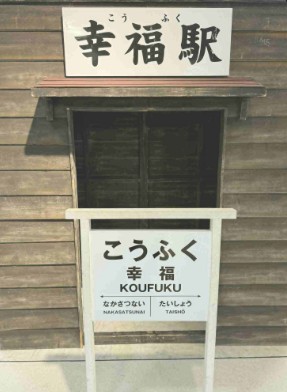 こうふく
幸福駅
こうふく
幸福
KOUFUKU
なかさつない たいしょう
NAKASATSUNAI TAISHŌ